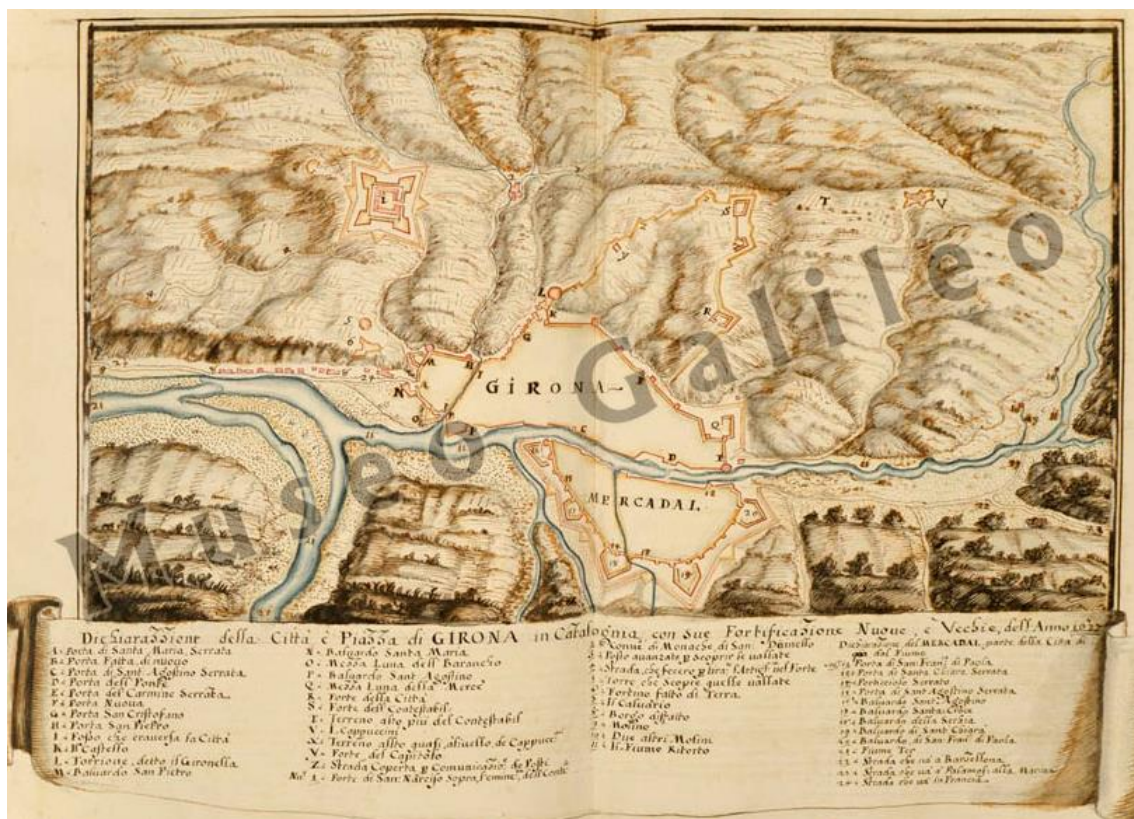 GIRONA
MERCADAL
Museo Galileo
Dichiarazzione della Città è Piazza di GIRONA in Catalocnia, con sue Fortificazione Nuove, è Vecchie, dell'Anno
A = Porta di Santa Maria Serrata
B = Porta Fatta di nuovo
C = Porta di Sant Agostino Serrata
D = Porta dell Ponte
E = Porta del Carmine Serrata
F = Porta Nuova
G = Porta San Cristofano
H = Porta San Pietro
I = Fosso che traversa la Città
K = Il Castello
L = Torrione, detto il Gironella
M = Baluardo San Pietro
N = Baluardo Santa Maria
O = Mezza Luna dell Barancho
P = Baluardo Sant Agostino
Q = Mezza Luna della Mercè
R = Forte della Città
S = Forte dell Contestabil
T = Terreno alto più del Contestabil
V = I Cappuccini
X = Terreno altro quasi, alivello, de Cappuccini
Y = Forte del Capitolo
Z = Strada Coperta p Comunicazio: de Posti
1 = Forte di San Narciso Sopra
Conve: di Monache, di San Daniello
Posto avanzato p scoprir le vallate
Strada, che fecero p tirar l'Artigl: nel Forte
Torre che Scopre quelle vallate
Fortino fatto di Terra
Il Calvario
Borgo disfatto
Molino
Due altri Molini
Il Fiume Ritorto
Dichiarazione del MERCADAL, parte della Città di qua dal Fiume
Porta di San Fran: di Paola
Porta di Santa Chiara Serrata
Porticciolo Serrato
Porta di Sant Agostino Serrata
Baluardo Sant Agostino
Baluardo Santa Croce
Baluardo della Serbia
Baluardo di Santa Chiara
Baluardo, di San Fran: di Paola
21 = Fiume Ter
22 = Strada che và a Barsellona
23 = Strada che và a Palamosi alla Marina
24 = Strada che và in Francia